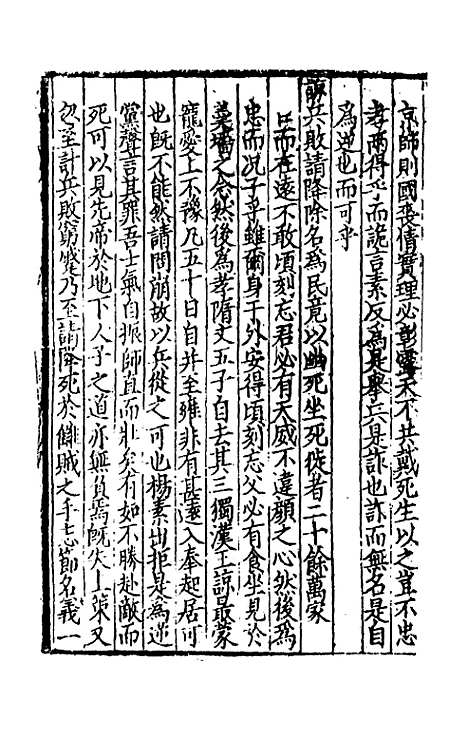 京師則國喪情實理必彰露天不共戴死生以之豈不忠
孝兩得乎而詭言素反爲是舉兵是詐也詐而無名是自
爲逆也而可乎
諒兵敗請降除名爲民竟以幽死坐死徙者二十餘萬家
臣而在遠不敢頃刻忘君必有天威不違顏之心然後爲
忠而况子乎雖爾身于外安得頃刻忘父必有食坐見於
羹墻之念然後爲孝隋文五子自去其三獨漢王諒最蒙
寵愛上不豫凡五十日自并至雍非有甚遠入奉起居可
也既不能然請問崩故以兵從之可也楊素出拒是爲逆
黨聲言其罪吾士氣自振師直而壯矣有如不勝赴敵而
死可以見先帝於地下人子之道亦無負焉既失上策又
忽至計兵敗窮蹙乃至請降死於讎賊之手志節名義一